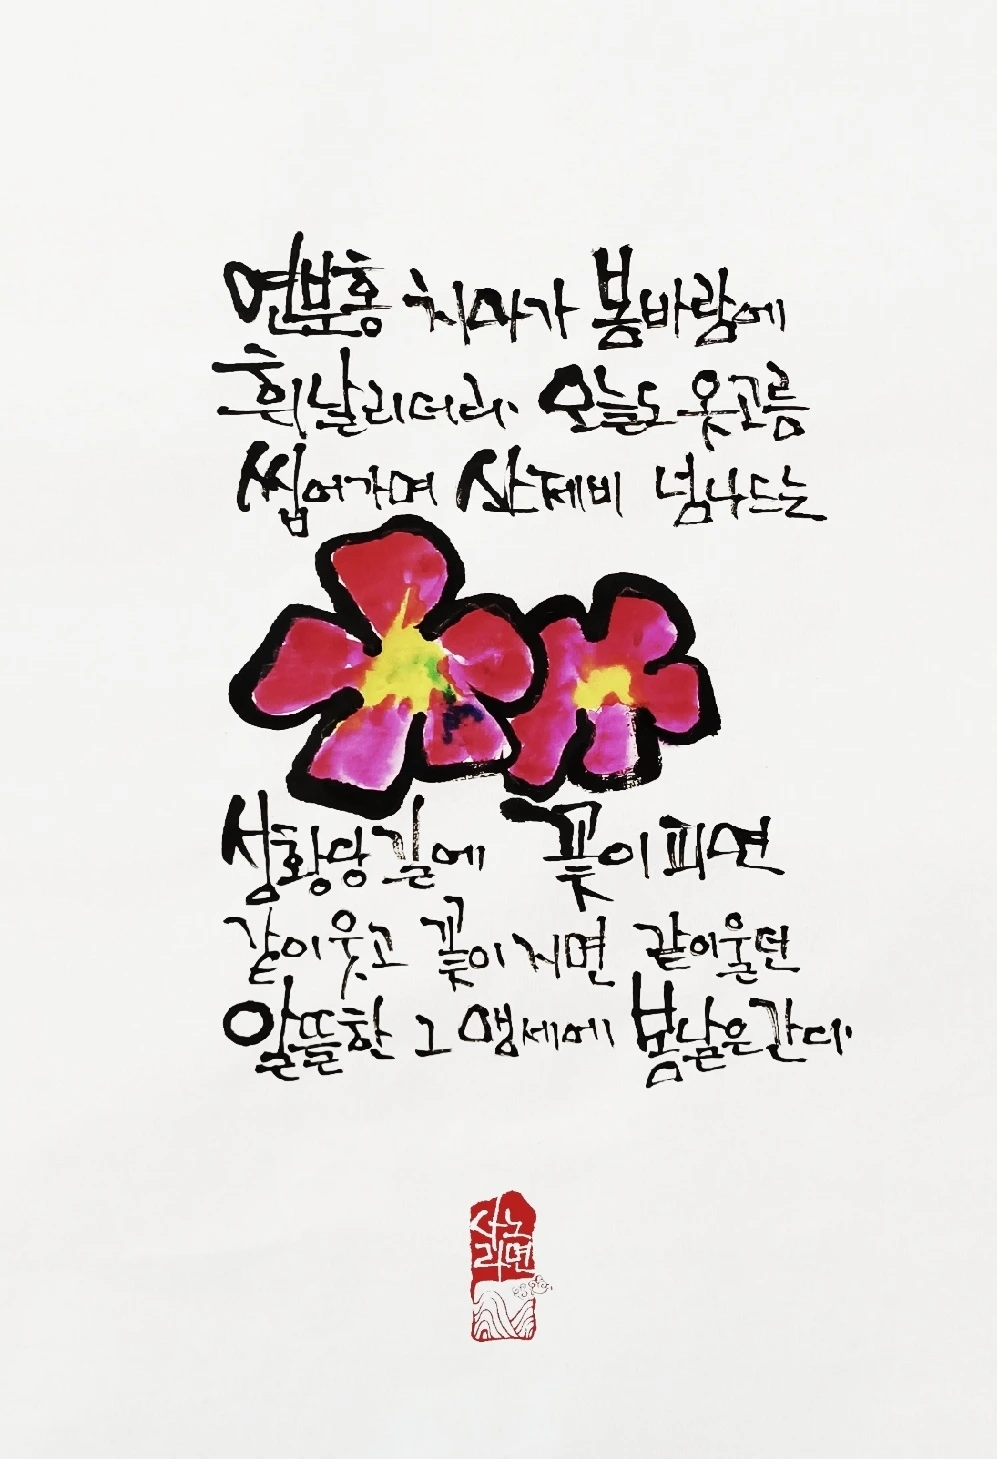 연분홍 치마가 봄바람에
휘날리더라 오늘도 옷고름
씹어가며 산제비 넘나드는
성황당 길에 꽃이 피면
같이 웃고 꽃이 지면 같이 울던
알뜰한 그 맹세에 봄날은 간다
사노
라면